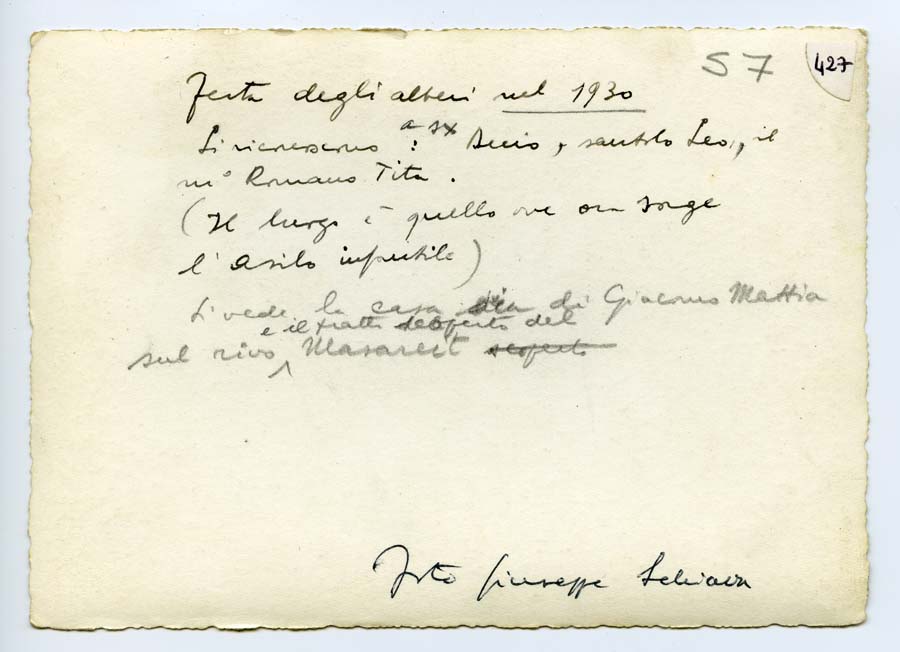 S7
427
Festa degli alberi nel 1930
Si riconoscono a sx : Bucio, santolo Leo, il
m° Romano Tita.
(Il luogo è quello ove ora sorge
l'asilo infantile)
Si vede la casa di Giacomo Mattia
e il tratto scoperto del
sul rivo Masareit scoperto
Foto Giuseppe Schiava